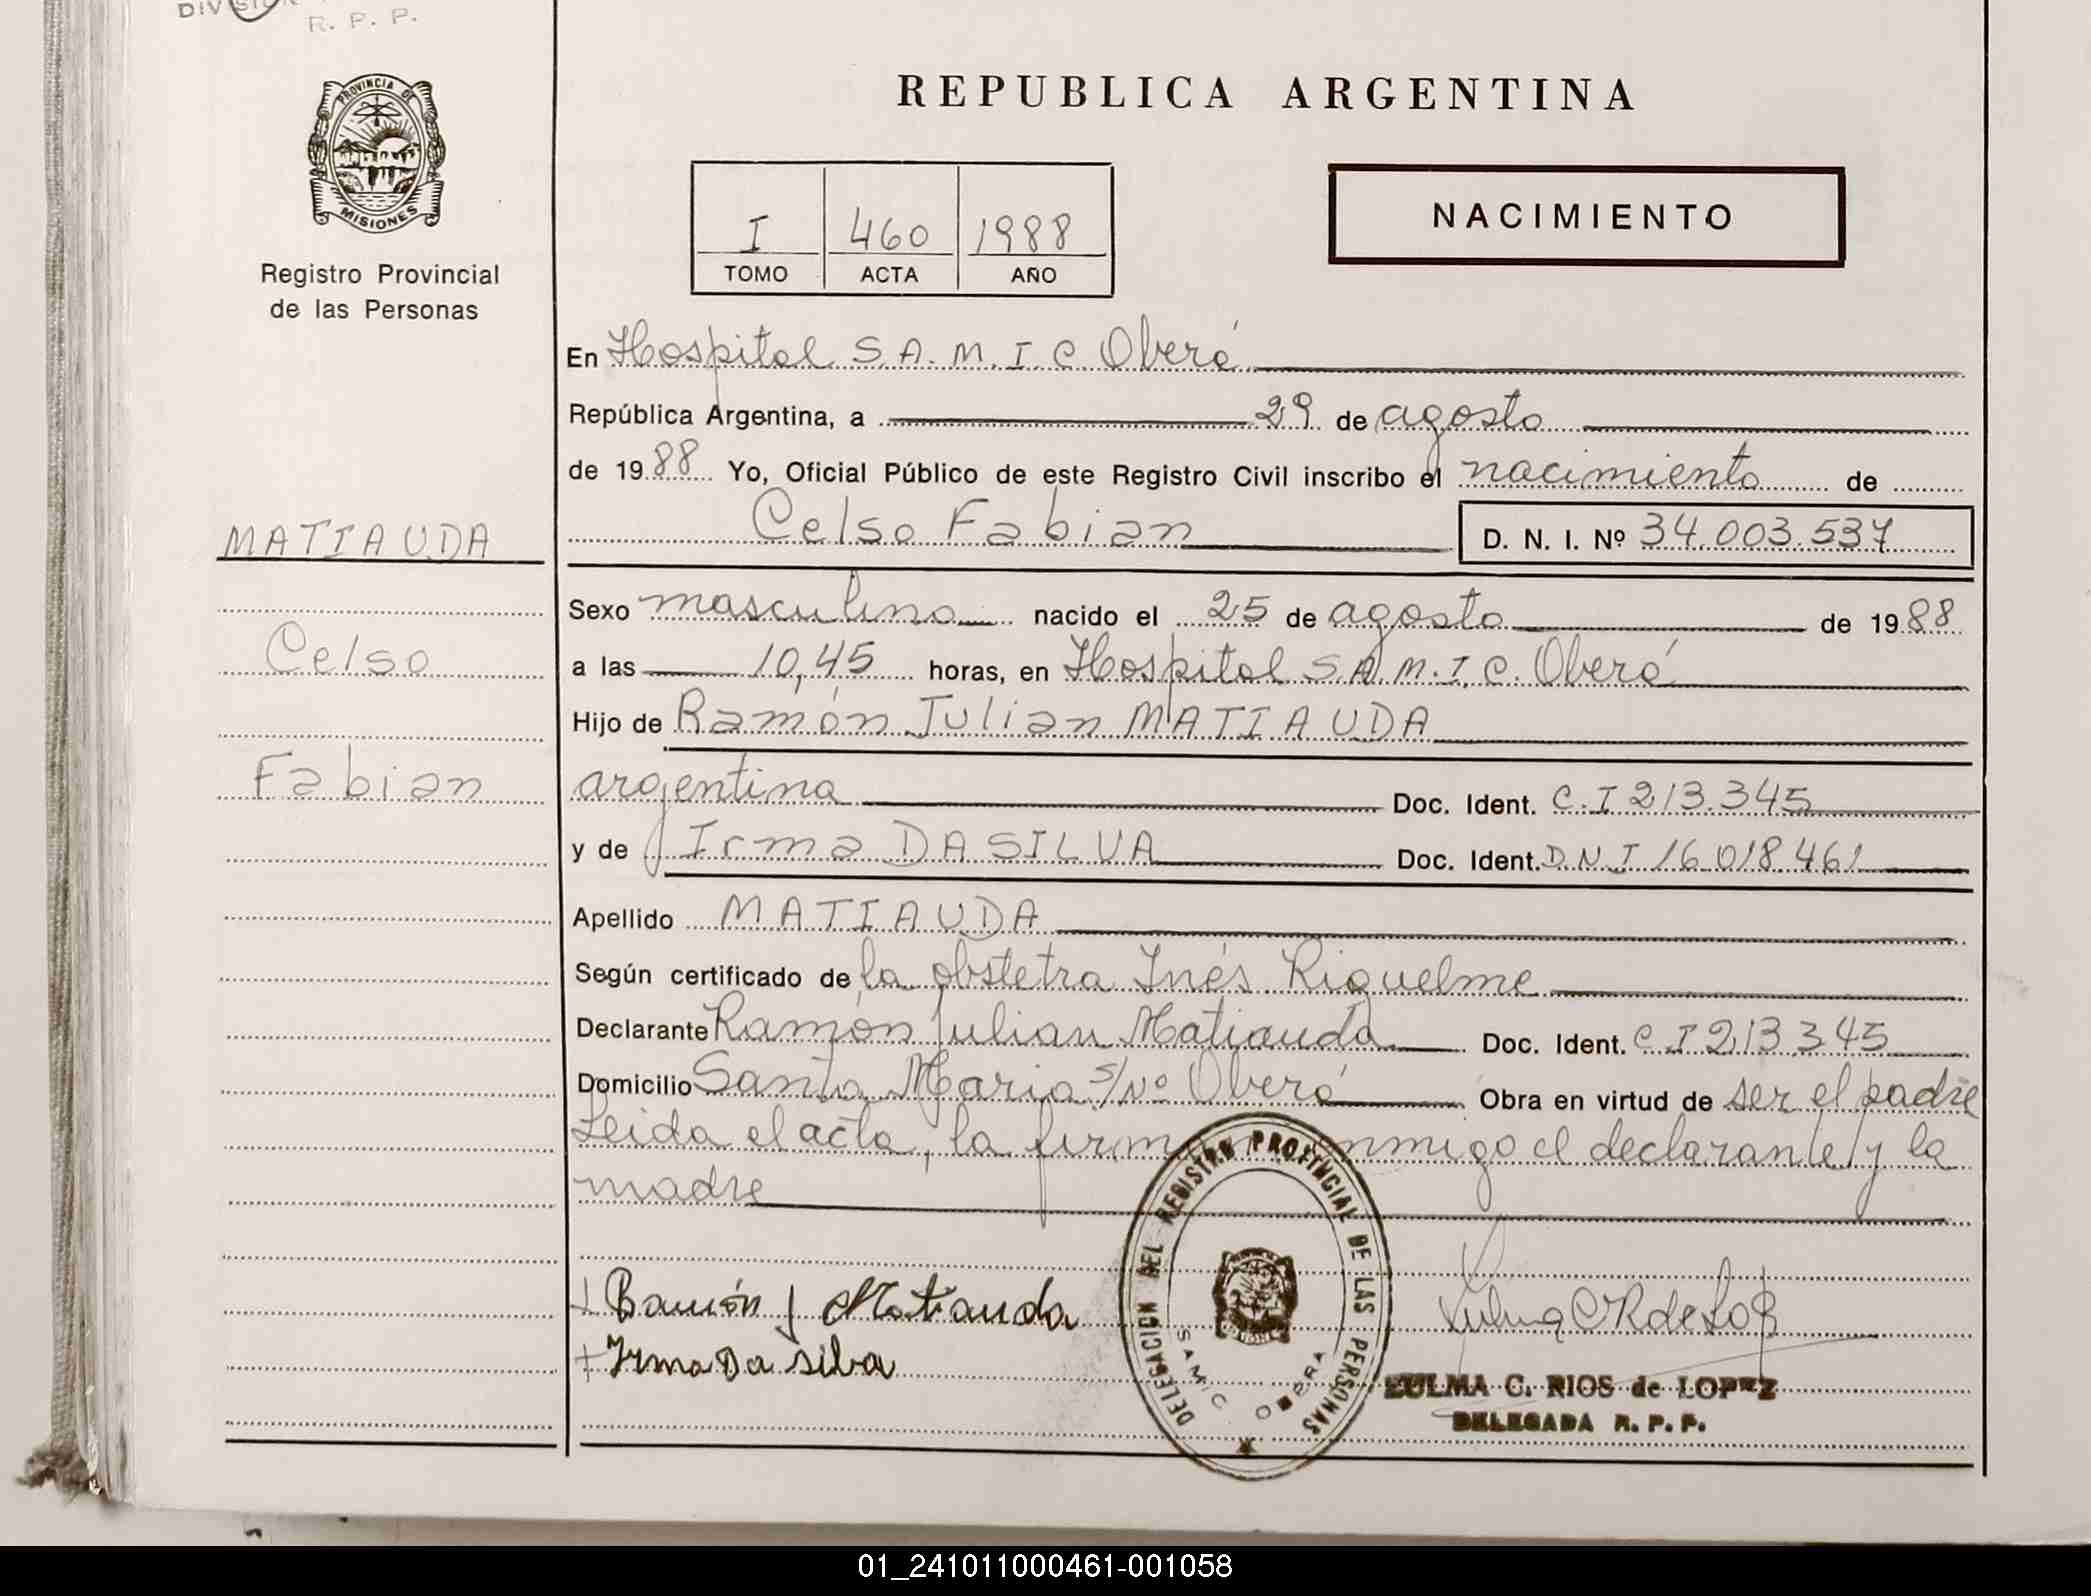 DIVISION
R. P. P.
PROVINCIA DE
MISIONES
Registro Provincial
de las Personas
REPUBLICA ARGENTINA
I 460 1988
TOMO ACTA AÑO
NACIMIENTO
En Hospital S.A.M.I.C. Oberá
República Argentina, a 29 de agosto
de 1988 Yo, Oficial Público de este Registro Civil inscribo el nacimiento de
Celso Fabian D. N. I. Nº 34.003.537
MATIAUDA
Sexo masculino nacido el 25 de agosto de 1988
Celso
a las 10,45 horas, en Hospital S.A.M.I.C. Oberá
Hijo de Ramón Julian MATIAUDA
Fabian
argentina Doc. Ident. C.I 213.345
y de Irma DA SILVA Doc. Ident. D.N.I 16.018.461
Apellido MATIAUDA
Según certificado de la obstetra Inés Riquelme
Declarante Ramón Julian Matiauda Doc. Ident. C.I 213 345
Domicilio Santa Maria s/Nº Oberá Obra en virtud de ser el padre
Leida el acta, la firman conmigo el declarante y la
madre
+ Ramón J Matiauda
+ Irma Da silva
DELEGACION DEL REGISTRO PROVINCIAL DE LAS PERSONAS
SAMIC OBERA
Zulma C R de Lop
ZULMA C. RIOS de LOPEZ
DELEGADA R. P. P.
01_241011000461-001058